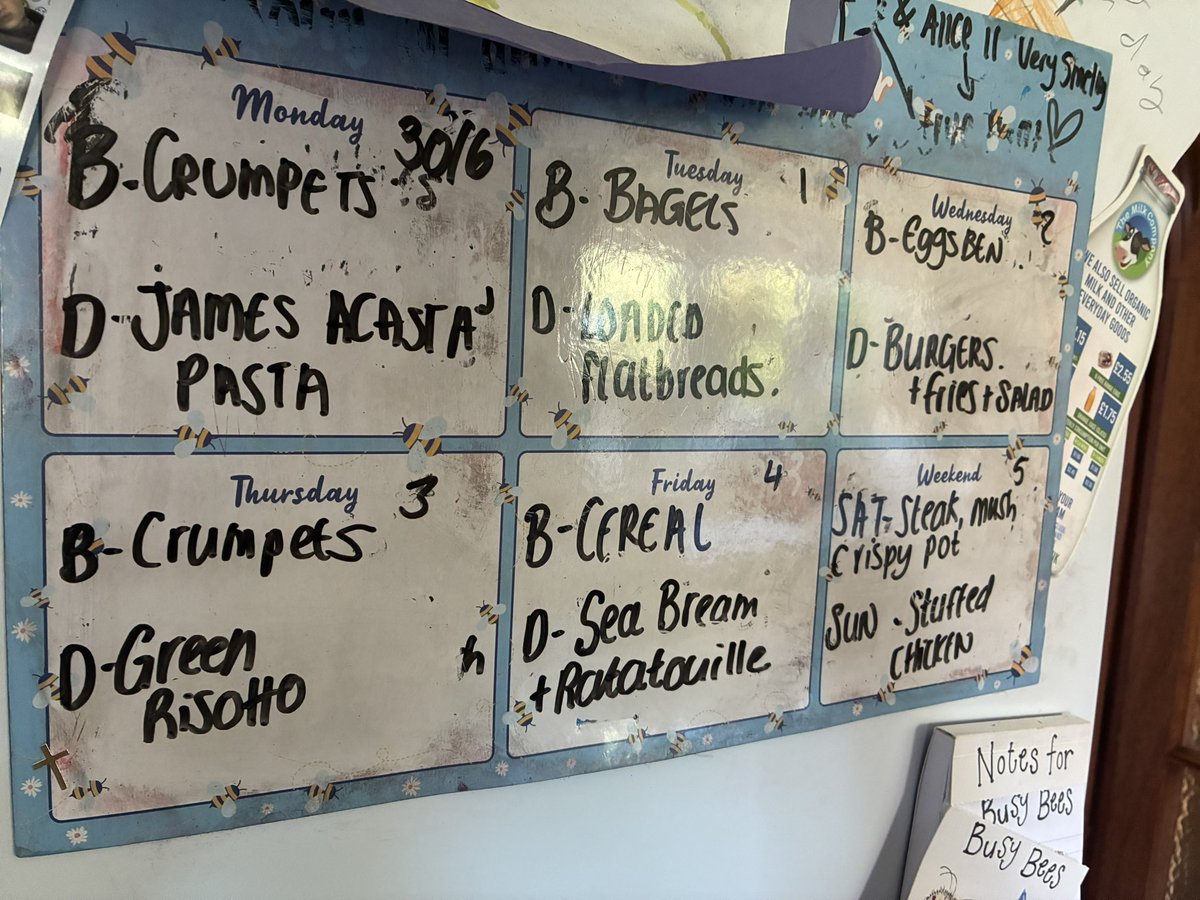 & Alice 11 Very Smelly
Monday
30/6
B-CRUMPETS
D-JAMES ACASTA'
PASTA
Tuesday
1
B-BAGELS
D-LOADED
flatbreads.
Wednesday
2
B-EggsBEN
D-BURGERS.
+fries+SALAD
Thursday
3
B-Crumpets
D-Green
RisoHo
h
Friday
4
B-CEREAL
D-Sea Bream
+Ratatouille
Weekend
5
SAT-Steak, mush,
crispy pot
SUN-Stuffed
CHICKEN
The Milk Company
WE ALSO SELL ORGANIC
MILK AND OTHER
EVERYDAY GOODS
£2.55
£1.75
Notes for
Busy Bees
Busy Bees